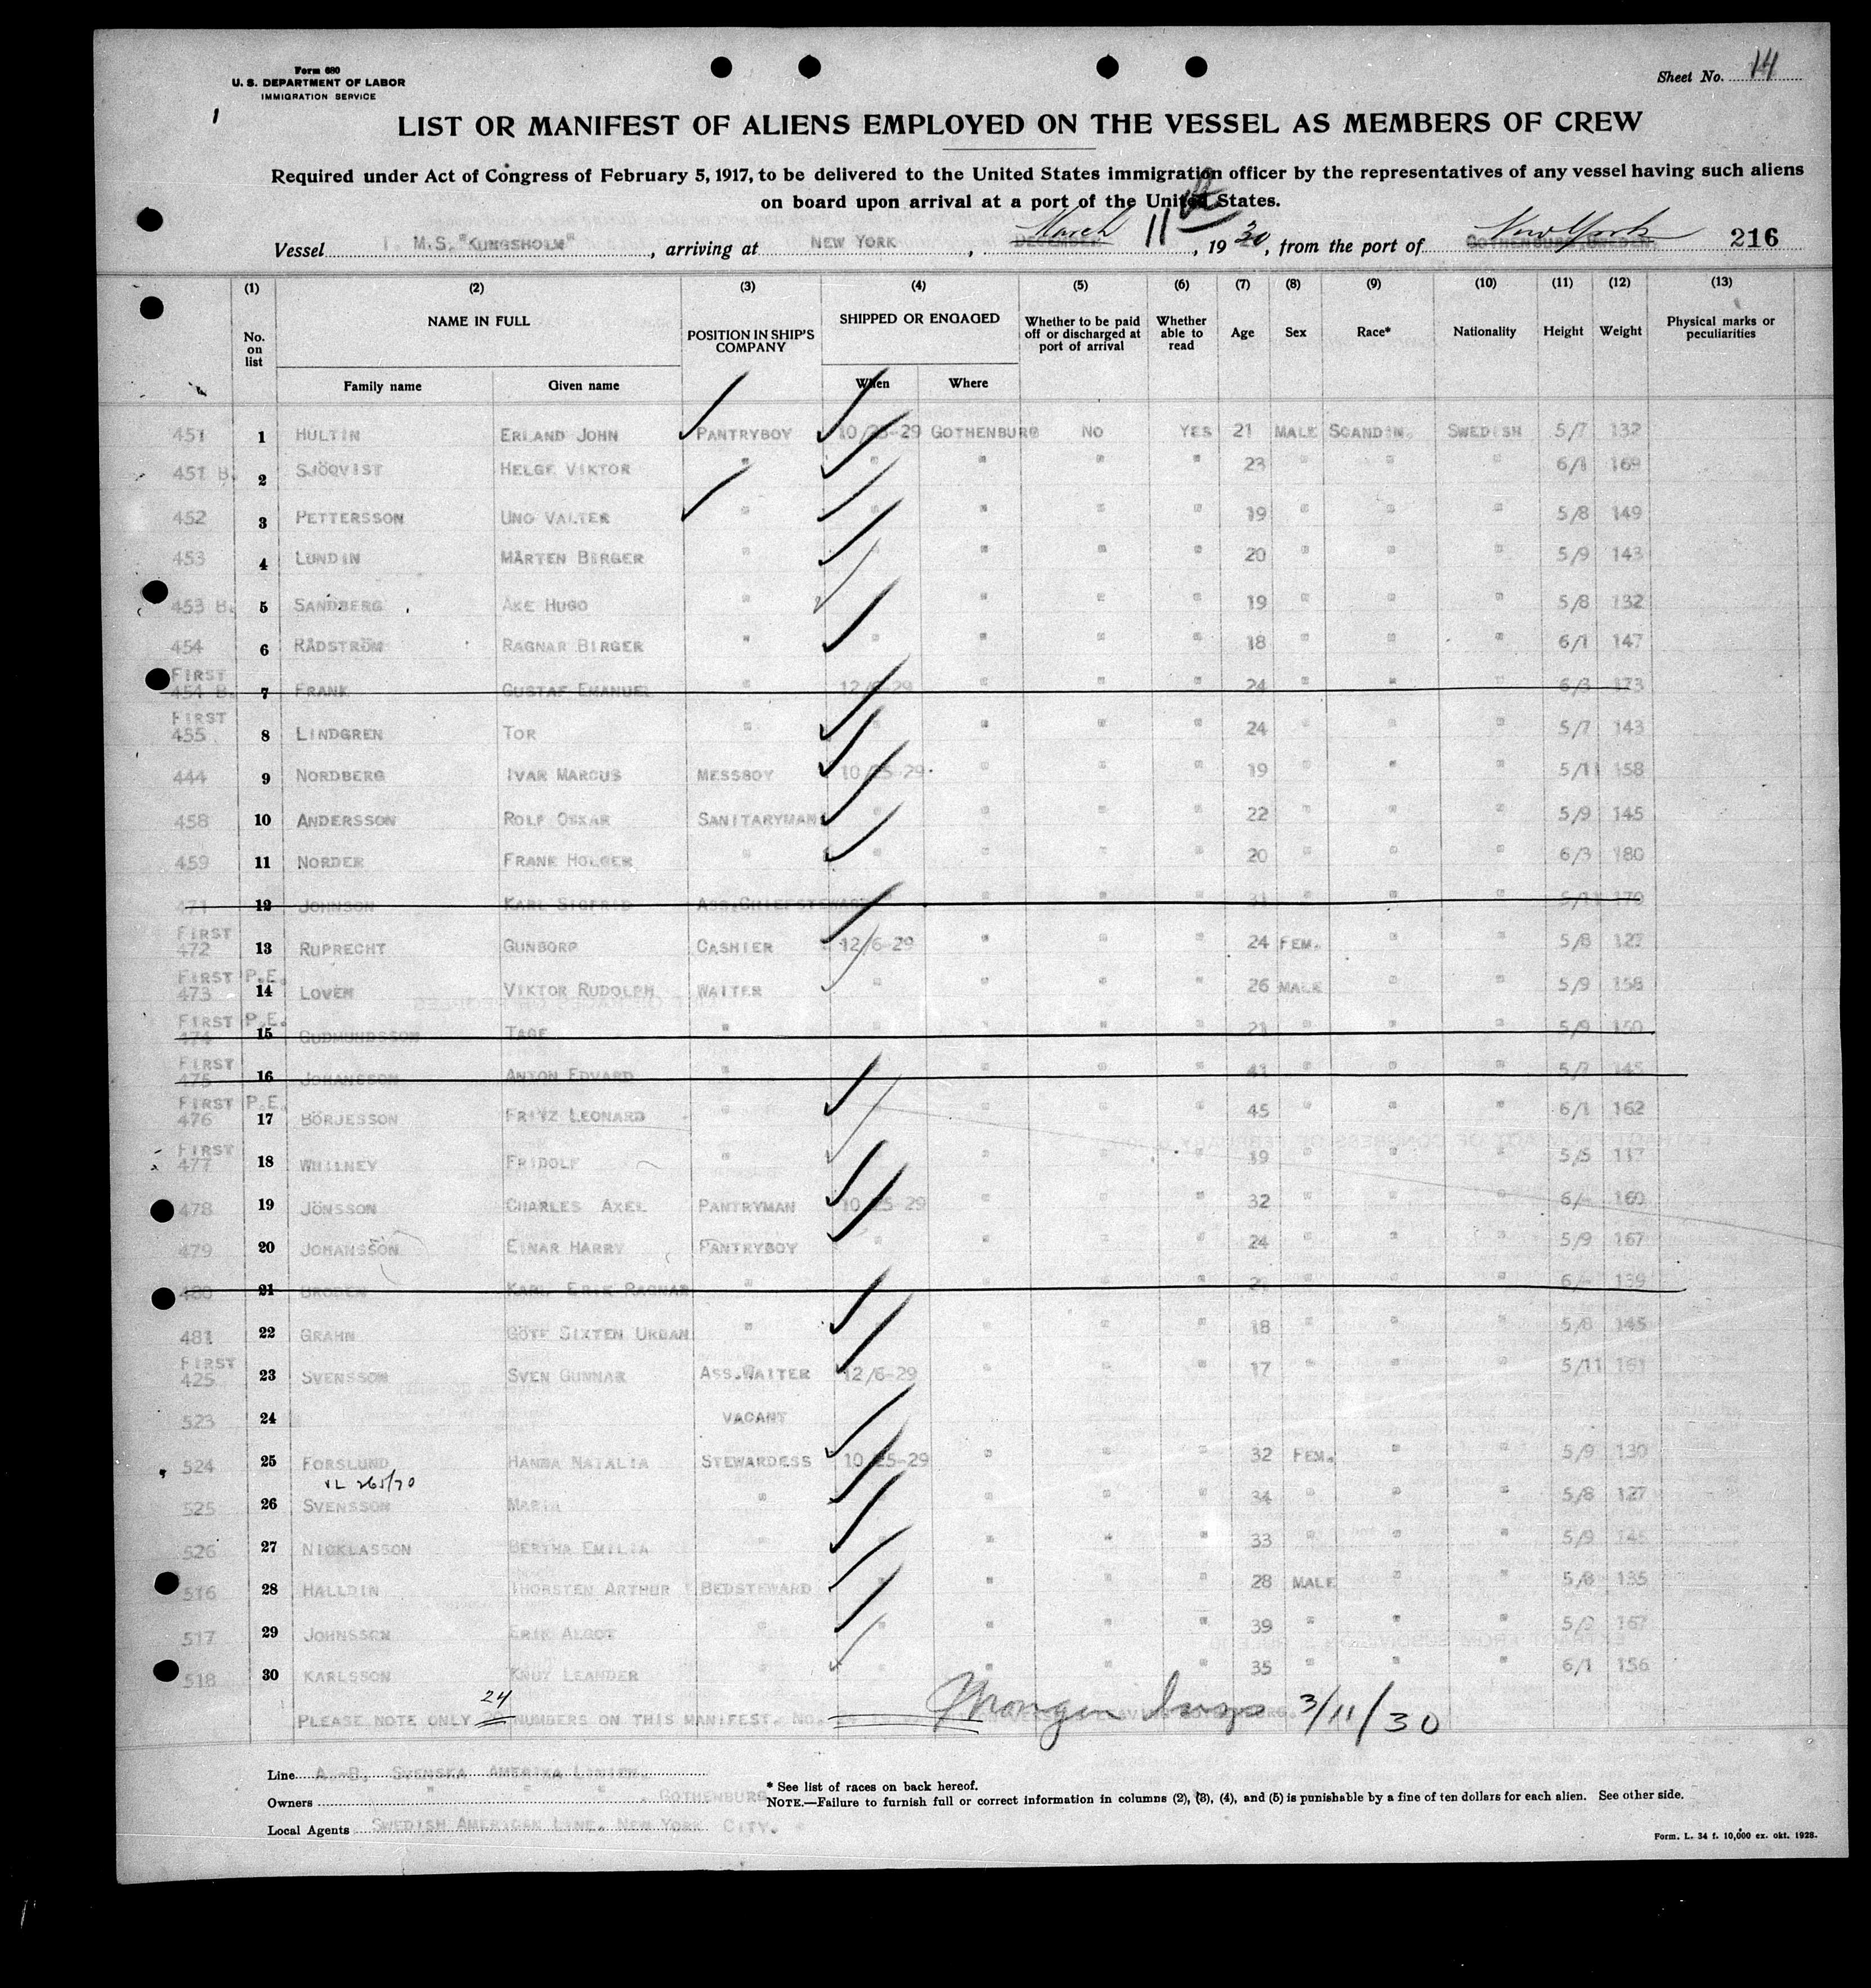 Form 680
U. S. DEPARTMENT OF LABOR
IMMIGRATION SERVICE
Sheet No. 14
LIST OR MANIFEST OF ALIENS EMPLOYED ON THE VESSEL AS MEMBERS OF CREW
Required under Act of Congress of February 5, 1917, to be delivered to the United States immigration officer by the representatives of any vessel having such aliens
on board upon arrival at a port of the United States.
Vessel M.S. "KUNGSHOLM", arriving at NEW YORK, DECEMBER March 11th, 1930, from the port of GOTHENBURG, SWEDEN. New York 216
(1) (2) (3) (4) (5) (6) (7) (8) (9) (10) (11) (12) (13)
No. on list NAME IN FULL POSITION IN SHIP'S COMPANY SHIPPED OR ENGAGED Whether to be paid off or discharged at port of arrival Whether able to read Age Sex Race* Nationality Height Weight Physical marks or peculiarities
Family name Given name When Where
451 1 HULTIN ERLAND JOHN PANTRYBOY 10/25-29 GOTHENBURG NO YES 21 MALE SCANDIN. SWEDISH 5/7 132
451 B. 2 SJÖQVIST HELGE VIKTOR " " " " " 23 " " " 6/1 169
452 3 PETTERSSON UNO VALTER " " " " " 19 " " " 5/8 149
453 4 LUNDIN MÅRTEN BIRGER " " " " " 20 " " " 5/9 143
453 B. 5 SANDBERG ÅKE HUGO " " " " 19 " " " 5/8 132
454 6 RÅDSTRÖM RAGNAR BIRGER " " " " " 18 " " " 6/1 147
FIRST 454 B. 7 FRANK GUSTAF EMANUEL " 12/6-29 " " " 24 " " " 6/3 173
FIRST 455 8 LINDGREN TOR " " " " 24 " " " 5/7 143
444 9 NORDBERG IVAR MARCUS MESSBOY 10/25-29 " " " 19 " " " 5/11 158
458 10 ANDERSSON ROLF OSKAR SANITARYMAN " " " " 22 " " " 5/9 145
459 11 NORDER FRANK HOLGER " " " " " 20 " " " 6/3 180
471 12 JOHNSON KARL SIGFRID ASS.CHIEFSTEWARD " " " 31 " " " 5/11 170
FIRST 472 13 RUPRECHT GUNBORG CASHIER 12/6-29 " " " 24 FEM. " " 5/8 127
FIRST P.E. 473 14 LOVEN VIKTOR RUDOLPH WAITER " " " " 26 MALE " " 5/9 158
FIRST P.E. 474 15 GUDMUNDSSON TAGE " " " " " 21 " " " 5/9 150
FIRST 475 16 JOHANSSON ANTON EDVARD " " " " 41 " " " 5/7 145
FIRST P.E. 476 17 BÖRJESSON FRITZ LEONARD " " " " " 45 " " " 6/1 162
FIRST 477 18 FRIDOLF " " " " 19 " " " 5/5 117
478 19 JÖNSSON CHARLES AXEL PANTRYMAN 10/25-29 " " " 32 " " " 6/- 160
479 20 JOHANSSON EINAR HARRY PANTRYBOY " " " " 24 " " " 5/9 167
480 21 BRODEN KARL ERIK RAGNAR " " " " 21 " " " 6/- 139
481 22 GRAHN GÖTE SIXTEN URBAN " " " " 18 " " " 5/8 145
FIRST 425 23 SVENSSON SVEN GUNNAR ASS.WAITER 12/6-29 " " " 17 " " " 5/11 161
523 24 VACANT
524 25 FORSLUND HANNA NATALIA STEWARDESS 10/25-29 " " " 32 FEM. " " 5/9 130
525 26 SVENSSON MARIA " " " " " 34 " " " 5/8 127
526 27 NICKLASSON BERTHA EMILIA " " " " 33 " " " 5/9 145
516 28 HALLDIN THORSTEN ARTHUR BEDSTEWARD " " " 28 MALE " " 5/8 135
517 29 JOHNSSON ERIK ALGOT " " " " " 39 " " " 5/9 167
518 30 KARLSSON KNUT LEANDER " " " " 35 " " " 6/1 156
24
PLEASE NOTE ONLY NUMBERS ON THIS MANIFEST. NO. 3/11/30
Line A.-B. SVENSKA AMERIKA LINIEN.
Owners " " " , GOTHENBURG
Local Agents SWEDISH AMERICAN LINE, NEW YORK CITY.
* See list of races on back hereof.
NOTE.—Failure to furnish full or correct information in columns (2), (3), (4), and (5) is punishable by a fine of ten dollars for each alien. See other side.
Form. L. 34 f. 10,000 ex. okt. 1928.